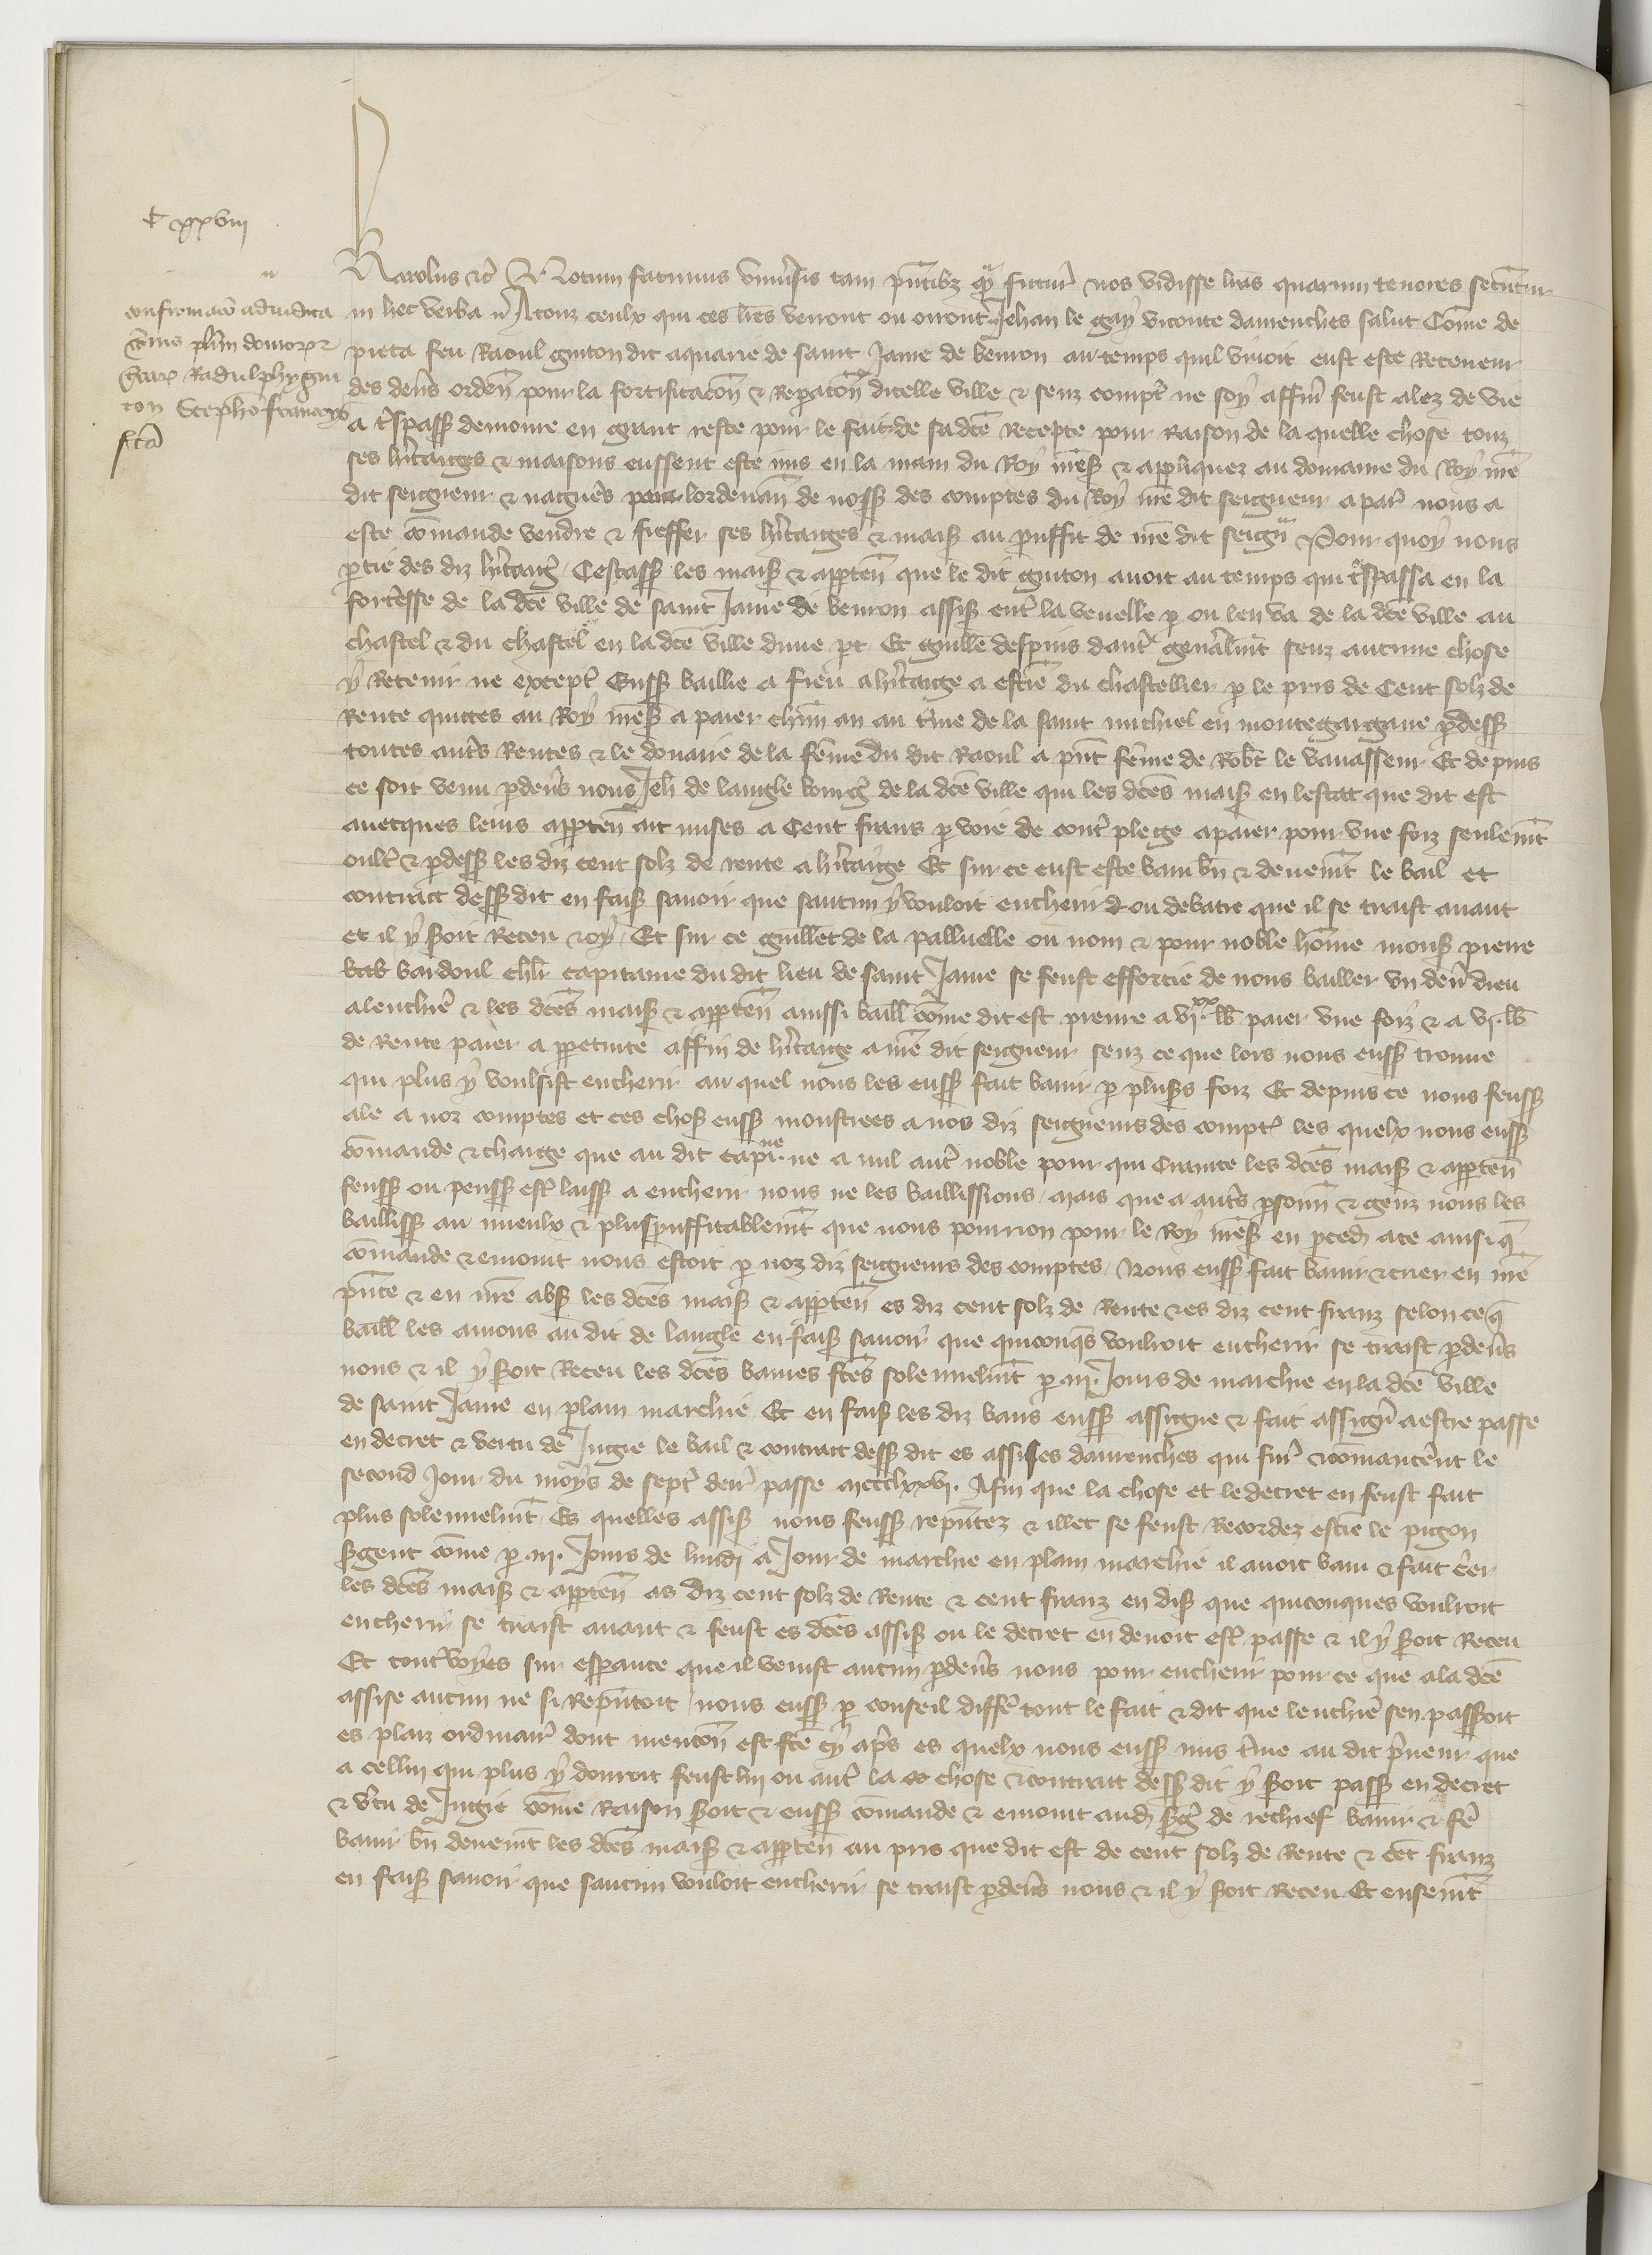 C xxviii
Confirmacio adiudica
cionis plurium domorum
quarum Radulphi guy
ton Stephano franceys
facta
Karolus etc̃ Notum facimus universis tam pñtibz q̃ futur̃ nos vidisse lr̃as quarum tenores secunt̃ur
in hec verba A touz ceulx qui ces lr̃es verront ou orront Jehan le gay viconte davrenches salut Cõme de
pieca feu Raoul guiton dit aquarie de saint Jame de bevron au temps quil vivoit eust este Receveur
des den̄rs orden̄ pour la fortificacõn & Reparacõn dicelle ville & senz compt̃ ne soy affin̄ feust alez de vie
a tr̃spass̃ demoure en grant reste pour le fait de sa dc̃e Recepte pour Raison de la quelle chose touz
ses hr̃itaiges & maisons eussent este mis en la main du Roy mẽs̃ & appliquez au domaine du Roy mõ
dit seigneur & nagueres pour lordenañ de noss̃ des comptes du Roy mõ dit seigneur a par̃ nous a
este cõmande vendre & fieffer ses hr̃itaiges & mais̃ au prouffit de mõ dit seign̄ Pour quoy nous
p̱tie des diz hr̃itaig̃ Cestass̃ les mais̃ & apparteñ que le dit guiton avoit au temps qui tr̃spassa en la
forteresse de la dc̃e ville de saint Jame de bevron assis̃ entr̃ la venelle p̱ ou len va de la dc̃e ville au
chastel & du chastel en la dc̃e ville dune p̱t Et guillẽ despins dautr̃ gen̄alm̃t senz aucune chose
y Retenir ne except̃ Euss̃ baillie a fieu a hr̃itaige a estiẽ du chastellier p̱ le pris de Cent solz de
Rente quictes au Roy mẽs̃ a paier chũn an au t̃me de la saint michiel en montegargane p̱dess̃
toutes autr̃s Rentes & le douaire de la fẽme du dit Raoul a pñt fẽme de Rob̃t le vavasseur Et depuis
ce soit venu p̱dev̄s nous Jeh̃ de laugle bourg̃ de la dc̃e ville qui les dc̃es mais̃ en lestat que dit est
avecques leurs apparteñ ait mises a Cent frans p̱ voie de contr̃ plege a paier pour une foiz seulem̃t
oultr̃ & p̱dess̃ les diz cent solz de rente a hr̃itaige Et sur ce eust este bani bñ & deuem̃t le bail et
contract dess̃ dit en fais̃ savoir que saucun y vouloit encherir ou debatre que il se traist avant
et il y s̃oit Receu & oy Et sur ce guillet de la palluelle ou nom & pour noble hõme mons̃ pierre
bab bardoul chlr̃ capitaine du dit lieu de saint Jame se feust efforcie de nous bailler un den̄ dieu
alenchie & les dc̃es mais̃ & apparteñ aussi baill̃ cõme dit est prenre a vi.xx lb̃ paier une foiz & a vi. lb̃
de Rente paier a p̱petuite affin de hr̃itaige a mõ dit seigneur senz ce que lors nous euss̃ trouve
qui plus y voulsist encherir au quel nous les euss̃ fait banir p̱ plus̃s foiz Et depuis ce nous feuss̃
ale a noz comptes et ces chos̃ euss̃ monstrees a nos diz seigneurs des compt̃ les quelx nous euss̃
cõmande & charge que au dit capi.ne ne a nul autr̃ noble pour qui Crainte les dc̃es mais̃ & apparteñ
feuss̃ ou peuss̃ est̃ laiss̃ a encherir nous ne les baillissions mais que a autr̃s p̱sonñ & genz nous les
bailliss̃ au mieulx & plus prouffitablem̃t que nous pourrion pour le Roy mẽs̃ en p̱ced̃ a ce ainsi q̃
cõmande & enioint nous estoit p̱ noz diz seigneurs des comptes Nous euss̃ fait banir & crier en nr̃e
pñce & en nr̃e abs̃ les dc̃es mais̃ & apparteñ es diz cent solz de Rente & es diz cent franz selon ce q̃
baill̃ les avions au dit de laugle en fais̃ savoir que quiconq̃s vouloit encherir se traist p̱dev̄s
nous & il y s̃oit Receu les dc̃es banies fc̃es solennelm̃t p̱ iii. Jours de marchie en la dc̃e ville
de saint Jame en plain marchie Et en fais̃ les diz bans euss̃ assigne & fait assign̄ a estre passe
en decret & vertu de Jugie le bail & contract dess̃ dit es assises davrenches qui fur̃ & cõmancer̃nt le
second Jour du moys de sept̃ den̄r passe mccclxxvi. Afin que la chose et le decret en feust fait
plus solennelm̃t Es quelles assis̃ nous feuss̃ repñtez & illec se feust Recordez estiẽ le pigon
s̃gent cõme p̱ iii. Jours de lundi a Jour de marchie en plain marchie il avoit bani & fait c̃er
les dc̃es mais̃ & apparteñ as diz cent solz de Rente & cent franz en dis̃ que quiconques vouloit
encherir se traist avant & feust es dc̃es assis̃ ou le decret en devoit est̃ passe & il y s̃oit Receu
Et toutr̃voyes sur esp̱ance que il venist aucun p̱dev̄s nous pour encherir pour ce que a la dc̃e
assise aucun ne si Rep̃ntoit nous euss̃ p̱ conseil differ̃ tout le fait & dit que lenchiẽ sen pass̃oit
es plaiz ordinair̃ dont mencõn est fc̃e cy apr̃s es quelx nous euss̃ mis t̃me au dit p̃neur que
a cellui qui plus y donroit feust lui ou autr̃ la chose & contract dess̃ dit y s̃oit pass̃ en decret
& v̄tu de Jugie cõme Raison s̃oit & euss̃ cõmande & enioint aud̃ s̃g̃ de rechief banir & fẽ
banir bñ deuem̃t les dc̃es mais̃ & apparteñ au pris que dit est de cent solz de Rente & cẽt franz
en fais̃ savoir que saucun vouloit encherir se traist p̱dev̄s nous & il y s̃oit Receu Et ensem̃t